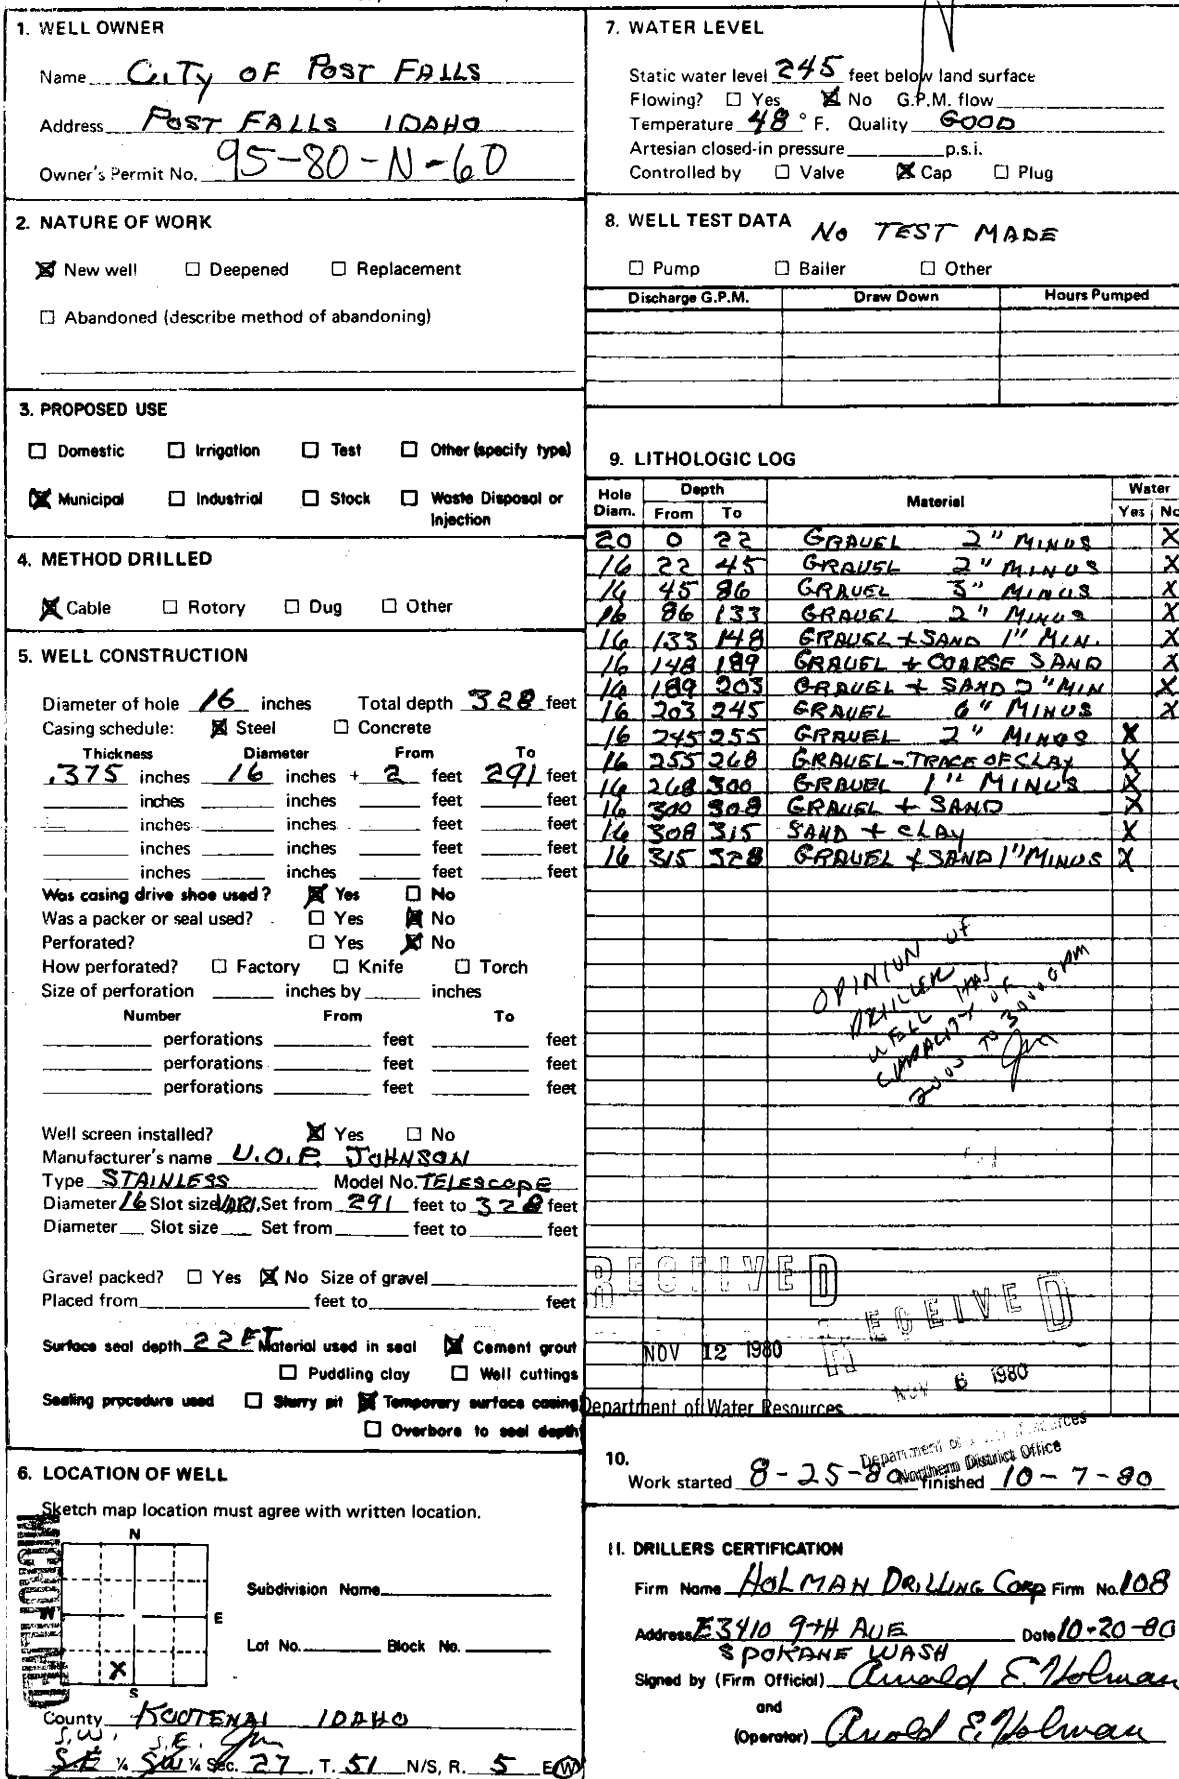 1. WELL OWNER
Name CITY OF POST FALLS
Address POST FALLS IDAHO
Owner's Permit No. 95-80-N-60
2. NATURE OF WORK
☒ New well ☐ Deepened ☐ Replacement
☐ Abandoned (describe method of abandoning)
3. PROPOSED USE
☐ Domestic ☐ Irrigation ☐ Test ☐ Other (specify type)
☒ Municipal ☐ Industrial ☐ Stock ☐ Waste Disposal or
Injection
4. METHOD DRILLED
☒ Cable ☐ Rotory ☐ Dug ☐ Other
5. WELL CONSTRUCTION
Diameter of hole 16 inches Total depth 328 feet
Casing schedule: ☒ Steel ☐ Concrete
Thickness Diameter From To
.375 inches 16 inches + 2 feet 291 feet
inches inches feet feet
inches inches feet feet
inches inches feet feet
inches inches feet feet
Was casing drive shoe used? ☒ Yes ☐ No
Was a packer or seal used? ☐ Yes ☒ No
Perforated? ☐ Yes ☒ No
How perforated? ☐ Factory ☐ Knife ☐ Torch
Size of perforation inches by inches
Number From To
perforations feet feet
perforations feet feet
perforations feet feet
Well screen installed? ☒ Yes ☐ No
Manufacturer's name U.O.P. JOHNSON
Type STAINLESS Model No. TELESCOPE
Diameter 16 Slot size VARI. Set from 291 feet to 328 feet
Diameter Slot size Set from feet to feet
Gravel packed? ☐ Yes ☒ No Size of gravel
Placed from feet to feet
Surface seal depth 22 FT Material used in seal ☒ Cement grout
☐ Puddling clay ☐ Well cuttings
Sealing procedure used ☐ Slurry pit ☒ Temporary surface casing
☐ Overbore to seal depth
6. LOCATION OF WELL
Sketch map location must agree with written location.
MICROFILMED
N
W E
X
S
Subdivision Name
Lot No. Block No.
County KOOTENAI IDAHO
S.W. S.E.
S.E ¼ SW ¼ Sec. 27, T. 51 N/S, R. 5 E/W
N
7. WATER LEVEL
Static water level 245 feet below land surface
Flowing? ☐ Yes ☒ No G.P.M. flow
Temperature 48 ° F. Quality GOOD
Artesian closed-in pressure p.s.i.
Controlled by ☐ Valve ☒ Cap ☐ Plug
8. WELL TEST DATA NO TEST MADE
☐ Pump ☐ Bailer ☐ Other
Discharge G.P.M. Draw Down Hours Pumped
9. LITHOLOGIC LOG
Hole Depth Material Water
Diam. From To Yes No
20 0 22 GRAVEL 2" MINUS X
16 22 45 GRAVEL 2" MINUS X
16 45 86 GRAVEL 3" MINUS X
16 86 133 GRAVEL 2" MINUS X
16 133 148 GRAVEL + SAND 1" MIN. X
16 148 189 GRAVEL + COARSE SAND X
16 189 203 GRAVEL + SAND 2" MIN X
16 203 245 GRAVEL 6" MINUS X
16 245 255 GRAVEL 2" MINUS X
16 255 268 GRAVEL-TRACE OF CLAY X
16 268 300 GRAVEL 1" MINUS X
16 300 308 GRAVEL + SAND X
16 308 315 SAND + CLAY X
16 315 328 GRAVEL + SAND 1" MINUS X
OPINION OF
DRILLER
WELL HAS
CAPACITY OF
2000 TO 3000 GPM
RECEIVED
NOV 12 1980
Department of Water Resources
RECEIVED
NOV 6 1980
Department of Water Resources
Northern District Office
10.
Work started 8-25-80 finished 10-7-80
11. DRILLERS CERTIFICATION
Firm Name HOLMAN DRILLING Corp Firm No. 108
Address E3410 9TH AVE Date 10-20-80
SPOKANE WASH
Signed by (Firm Official) Arnold E. Holman
and
(Operator) Arnold E. Holman